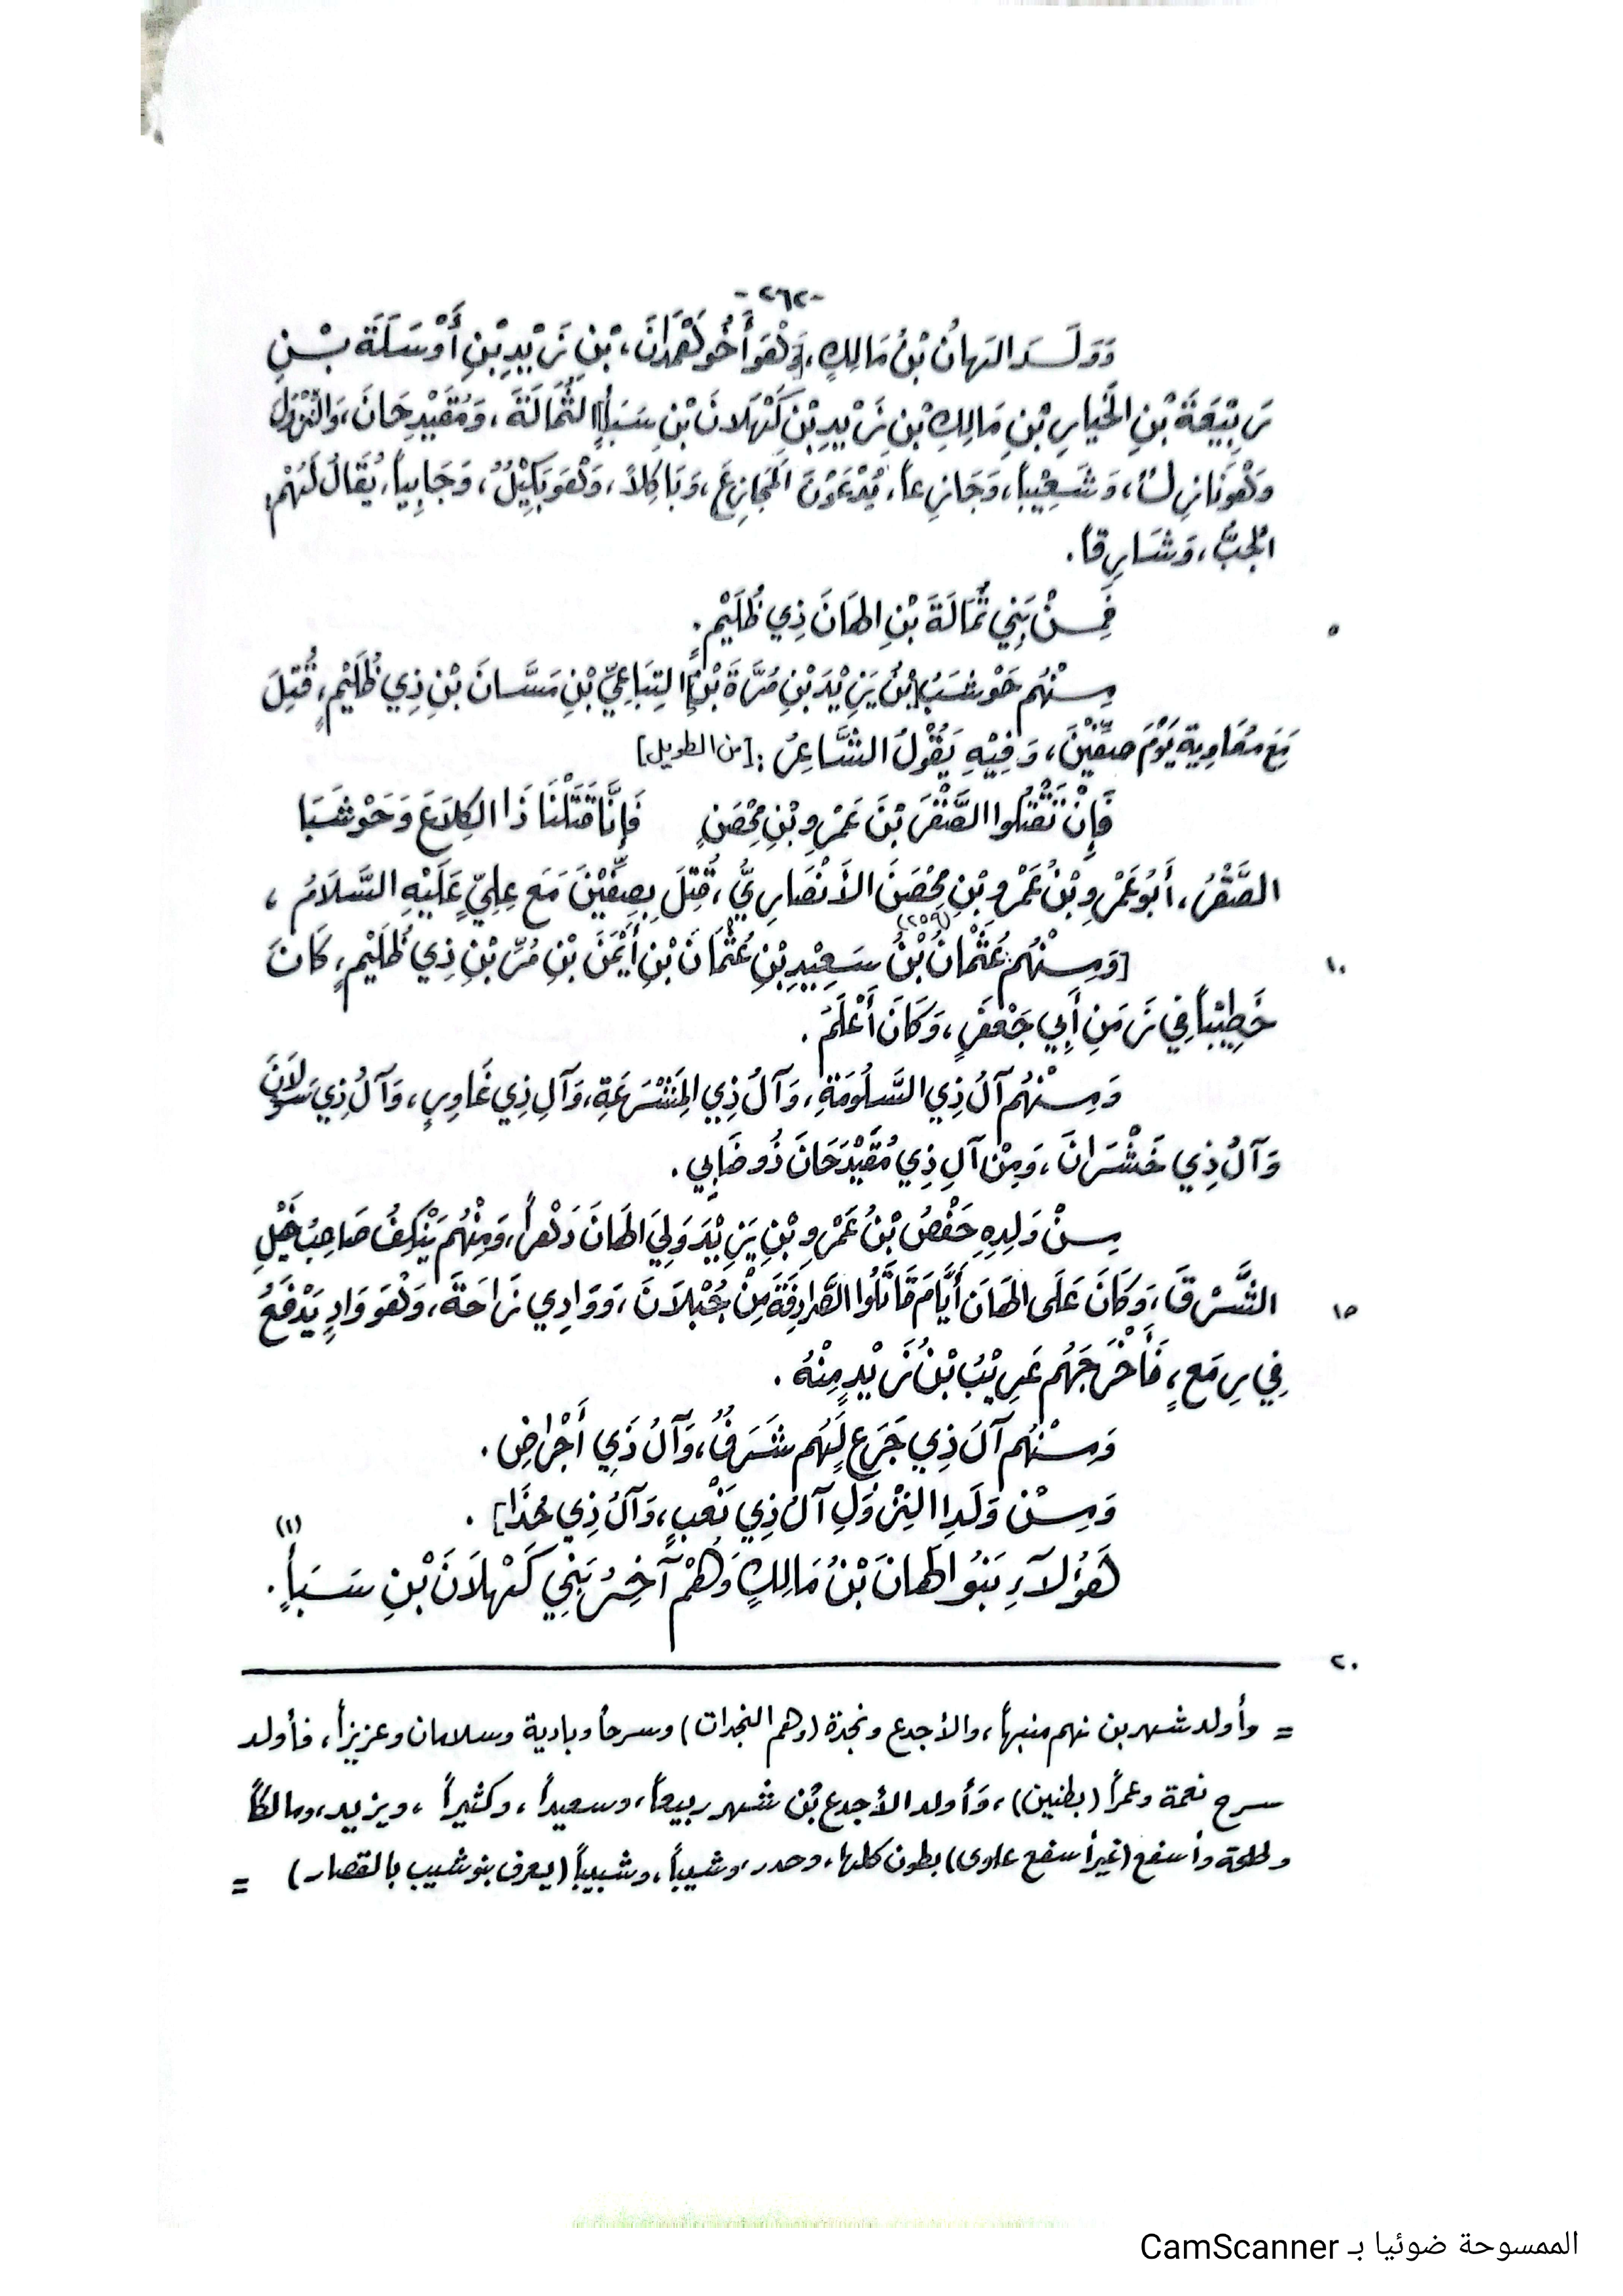 -٢٦٢-
وَوَلَــدَ الهانُ بْنُ مَالِكٍ، وَهْوَ أَخُو هَمْدَانَ، بْنِ زَيْدِ بْنِ أَوْسَلَةَ بْـنِ
رَبِيْعَةَ بْنِ الخَيارِ بْنِ مَالِكِ بْنِ زَيْدِ بْنِ كَهْلَانَ بْنِ سَبَأٍ [الثُّمَالَةَ، وَمُقَيْدِحَانَ، وَالنِّزْوَلَ
وَهْوَنَازِلُ، وَشَعِيْباً، وَجَازِعاً، يُدْعَوْنَ الجَازِعَ، وَبَاكِلاً، وَهْوَ بَكِيْلٌ، وَجَابِياً، يُقَالُ لَهُمْ،
الجُبُّ، وَشَارِقاً.
٥ فَمِـنْ بَنِي ثُمَالَةَ بْنِ الهَانَ ذِي ظُلَيْمٍ.
مِـنْهُم حَوْشَبُ [بْنُ يَزِيْدَ بْنِ مُرَّةَ بْنِ] التِبَاعِيِّ بْنِ مَسَّانَ بْنِ ذِي ظُلَيْمٍ، قُتِلَ
مَعَ مُعَاوِيةَ يَوْمَ صِفِّيْنَ، وَفِيْهِ يَقُوْلُ الشَّاعِرُ: [من الطويل]
فَإِنْ تَقْتُلُوا الصَّقْرَ بْنَ عَمْرِو بْنِ مِحْصَنٍ فَإِنَّا قَتَلْنَا ذَا الكِلَاعَ وَحَوْشَبَا
الصَّقْرُ، أَبُو عَمْرِو بْنُ عَمْرِو بْنِ مِحْصَنَ الأَنْصَارِيُّ، قُتِلَ بِصِفِّيْنَ مَعَ عِلِيٍّ عَلَيْهِ السَّلَامُ،
١٠ [وَمِـنْهُم عُثْمَانُ بْنُ (٢٥٩) سَعِيْدِ بْنِ عُثْمَانَ بْنِ أَيْمَنَ بْنِ مُرِّ بْنِ ذِي ظُلَيْمٍ، كَانَ
خَطِيْباً فِي زَمَنِ أَبِي جَعْفَرٍ، وَكَانَ أَعْلَمَ.
وَمِـنْهُم آلُ ذِي السَّلُومَةِ، وَآلُ ذِي المَنْسَرَعَةِ، وَآلِ ذِي غَاوِرٍ، وَآلُ ذِي سَولَانَ
وَآلُ ذِي خَشْرَانَ، وَمِنْ آلِ ذِي مُقَيْدَحَانَ ذُو ضَابِي.
مِـنْ وَلِدِهِ حَفْصُ بْنُ عَمْرِو بْنِ يَزِيْدَ وَلِيَ الهَانَ دَهْراً، وَمِنْهُم يَنْكِفُ صَاحِبُ خَيْلِ
١٥ الشَّرْقَ، وَكَانَ عَلَى الهَانَ أَيَّامَ قَاتَلُوا الصَّرَادِفَةَ مِنْ جُبْلَانَ، وَوَادِي زَاحَةَ، وَهْوَ وَادٍ يَدْفَعُ
فِي رِمَعٍ، فَأَخْرَجَهُم عَرِيْبُ بْنُ زَيْدٍ مِنْهُ.
وَمِـنْهُم آلَ ذِي جَرَعٍ لَهُم شَرَفٌ، وَآلُ ذَي أَجْرَاضٍ.
وَمِـنْ وَلَدِ النِزْوَلِ آلُ ذِي نَعْبٍ، وَآلُ ذِي مُحَذَا].
هَؤُلَاءِ بَنُو الهانَ بْنُ مَالِكٍ وَهُمْ آخِرُ بَنِي كَهْلَانَ بْنِ سَبَأٍ.(١)
٢٠
= وأولد شهر بن نهم منبهاً، والأجدع ونجدة (وهم النجدات) وسرحاً وبادية وسلامان وعزيزاً، فأولد
سرح نعمة وعمراً (بطنين)، وَأولد الأجدع بْن شهر ربيعاً، وسعيداً، وكثيراً، ويزيد، ومالكاً
وطلحة وأسفع (غير أسفع علوى) بطون كلها، وحدر، وشيباً، وشبيباً (يعرف بنو شبيب بالقصار) =
الممسوحة ضوئيا بـ CamScanner